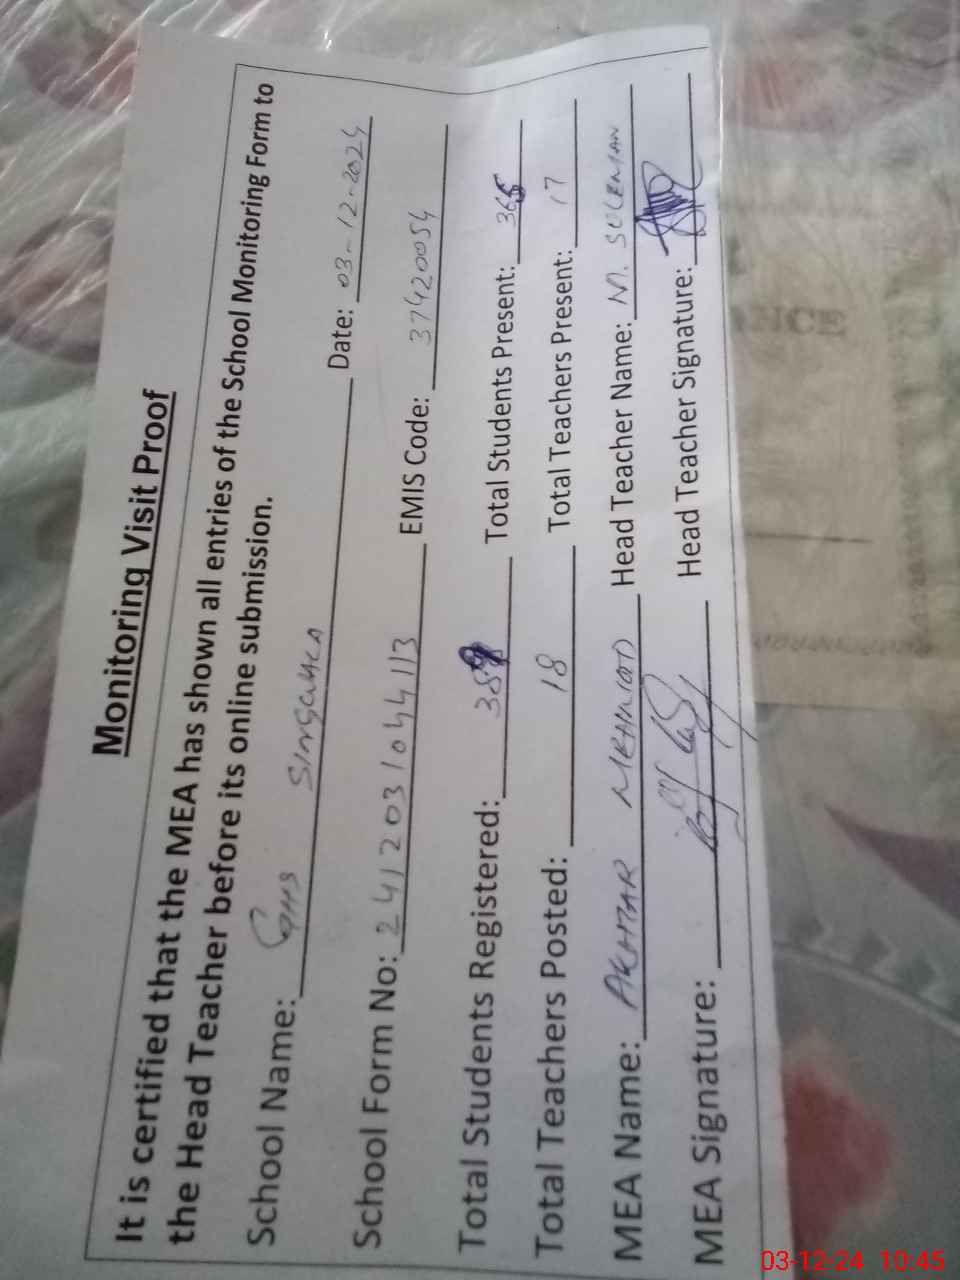 Monitoring Visit Proof
It is certified that the MEA has shown all entries of the School Monitoring Form to
the Head Teacher before its online submission.
School Name: GHS SINGWALA Date: 03-12-2024
School Form No: 2412031044113 EMIS Code: 37420054
Total Students Registered: 389 Total Students Present:
Total Teachers Posted: 18 Total Teachers Present: 17
MEA Name: AKHTAR MEHMOOD Head Teacher Name: M. SULEMAN
MEA Signature: Head Teacher Signature:
03-12-24 10:45